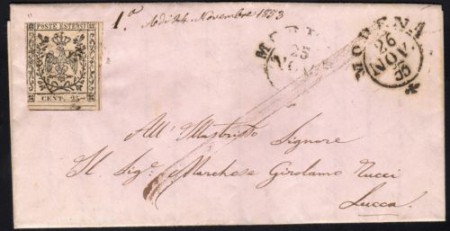 POSTE ESTENSI
CENT. 25
1.a Adi 24 Novembre 1853
MODENA
25
NOV.
MODENA
26
NOV.
53
All' Illustrissimo Signore
Il Sig.r Marchese Girolamo Tucci
Lucca